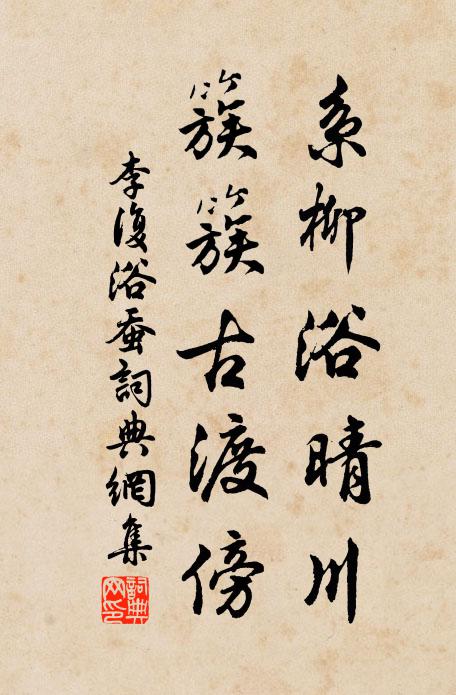 系柳浴晴川
簇簇古渡傍
李復浴蚕詞典網集
詞典網印